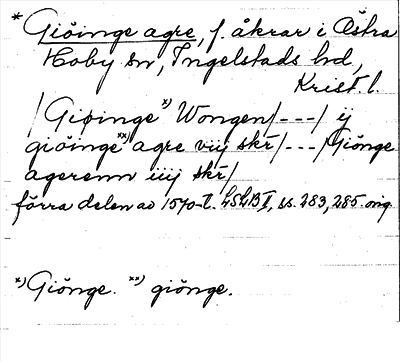 * Giöinge agre, f. åkrar i Östra
Hoby sn, Ingelstads hd,
Krist. l.
/Giøinge x) Wongen/---/ ij
giöinge xx) agre viij skr̄/---/Giönge
agerenn iiij skr̄/
förra delen av 1570-t. LSLB II, ss. 283, 285. orig.
x) Giönge. xx) giönge.